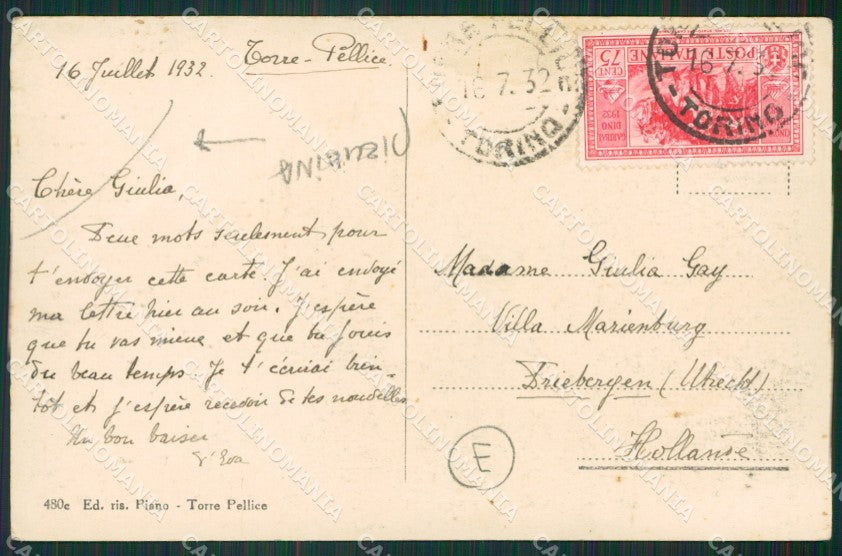 16 Juillet 1932. Torre-Pellice.
Chère Giulia,
Deux mots seulement pour
t'envoyer cette carte. J'ai envoyé
ma lettre hier au soir. J'espère
que tu vas mieux et que tu jouis
du beau temps. Je t'écrirai bien-
tôt et j'espère recevoir de tes nouvelles
Un bon baiser
d'Eva
480e Ed. ris. Piano - Torre Pellice
16.7.32
TORINO
POSTE ITALIANE
CENT 75
GARIBALDI
1932
16.7.3
TORINO
Madame Giulia Gay
Villa Marienburg
Driebergen (Utrecht)
Hollande
E
CARTOLINOMANIA